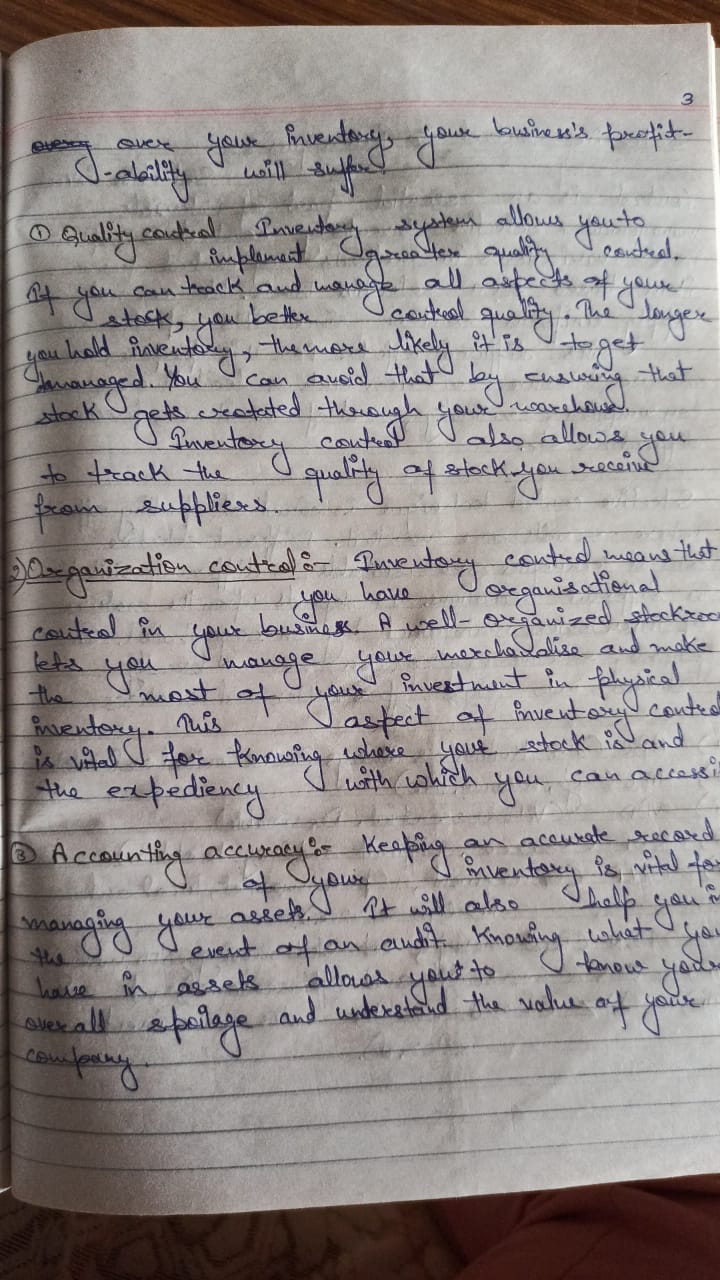 3
every over your inventory, your business's profit-
-ability will suffer.
① Quality control Inventory system allows you to
implement greater quality control.
If you can track and manage all aspects of your
stock, you better control quality. The longer
you hold inventory, the more likely it is to get
damanaged. You can avoid that by ensuring that
stock gets creotated through your warehouse.
Inventory control also allows you
to track the quality of stock you receive
from suppliers.
2) Organization control:- Inventory control means that
you have organisational
control in your business. A well-organized stockroo
lets you manage your merchandise and make
the most of your investment in physical
inventory. This aspect of inventory control
is vital for knowing where your stock is and
the expediency with which you can access i
③ Accounting accuracy:- Keeping an accurate record
of your inventory is vital for
managing your assets. It will also help you i
the event of an audit. Knowing what yo
have in assets allows you to know your
over all spoilage and understand the value of your
company.